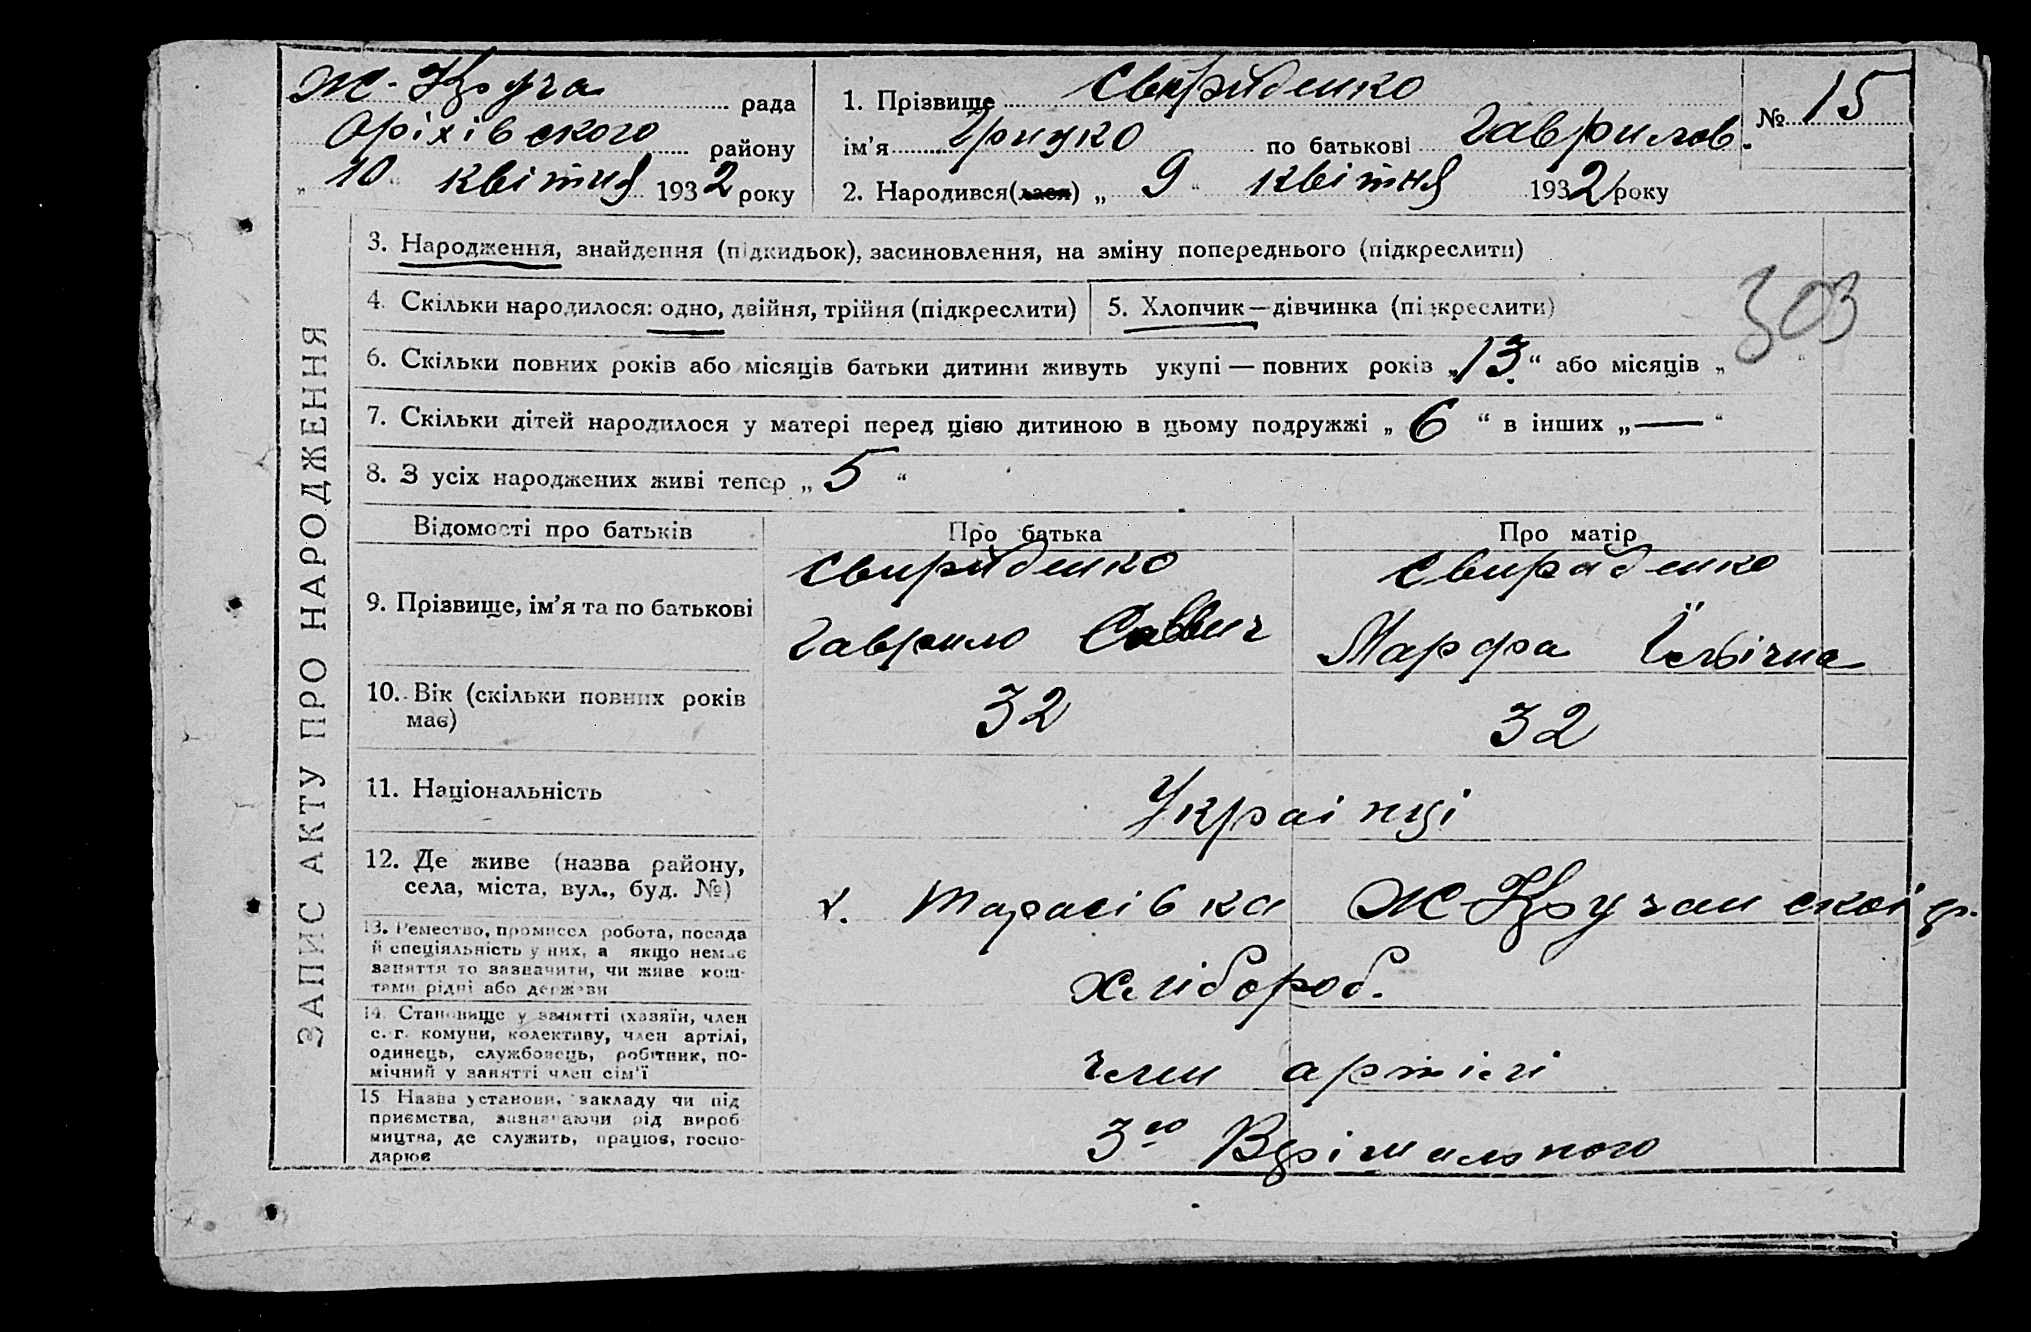 Ж-Круча рада
Оріхівського району
„ 10 “ квітня 1932 року
1. Прізвище Свириденко
ім’я Грицко по батькові Гаврилов.
№ 15
2. Народився(лася) „ 9 “ квітня 1932 року
ЗАПИС АКТУ ПРО НАРОДЖЕННЯ
3. Народження, знайдення (підкидьок), засиновлення, на зміну попереднього (підкреслити)
303
4. Скільки народилося: одно, двійня, трійня (підкреслити)
5. Хлопчик—дівчинка (підкреслити)
6. Скільки повних років або місяців батьки дитини живуть укупі — повних років „13“ або місяців „ “
7. Скільки дітей народилося у матері перед цією дитиною в цьому подружжі „ 6 “ в інших „—“
8. З усіх народжених живі тепер „ 5 “
Відомості про батьків Про батька Про матір
9. Прізвище, ім’я та по батькові
Свириденко Свириденко
Гаврило Саввич Марфа
10. Вік (скільки повних років
має)
32 32
11. Національність
Украінці
12. Де живе (назва району,
села, міста, вул., буд. №)
х. Тарасівка Ж-Кручанськоі р.
13. Ремество, промисел робота, посада
й спеціяльність у них, а якщо немає
заняття то зазначити, чи живе кош-
тами рідні або держави
Хлібороб.
14. Становище у занятті (хазяїн, член
с.-г. комуни, колективу, член артілі,
одинець, службовець, робітник, по-
мічний у занятті член сім’ї
член артілі
15 Назва установи, закладу чи під
приємства, зазначаючи рід вироб
ництва, де служить, працює, госпо-
дарює
3го